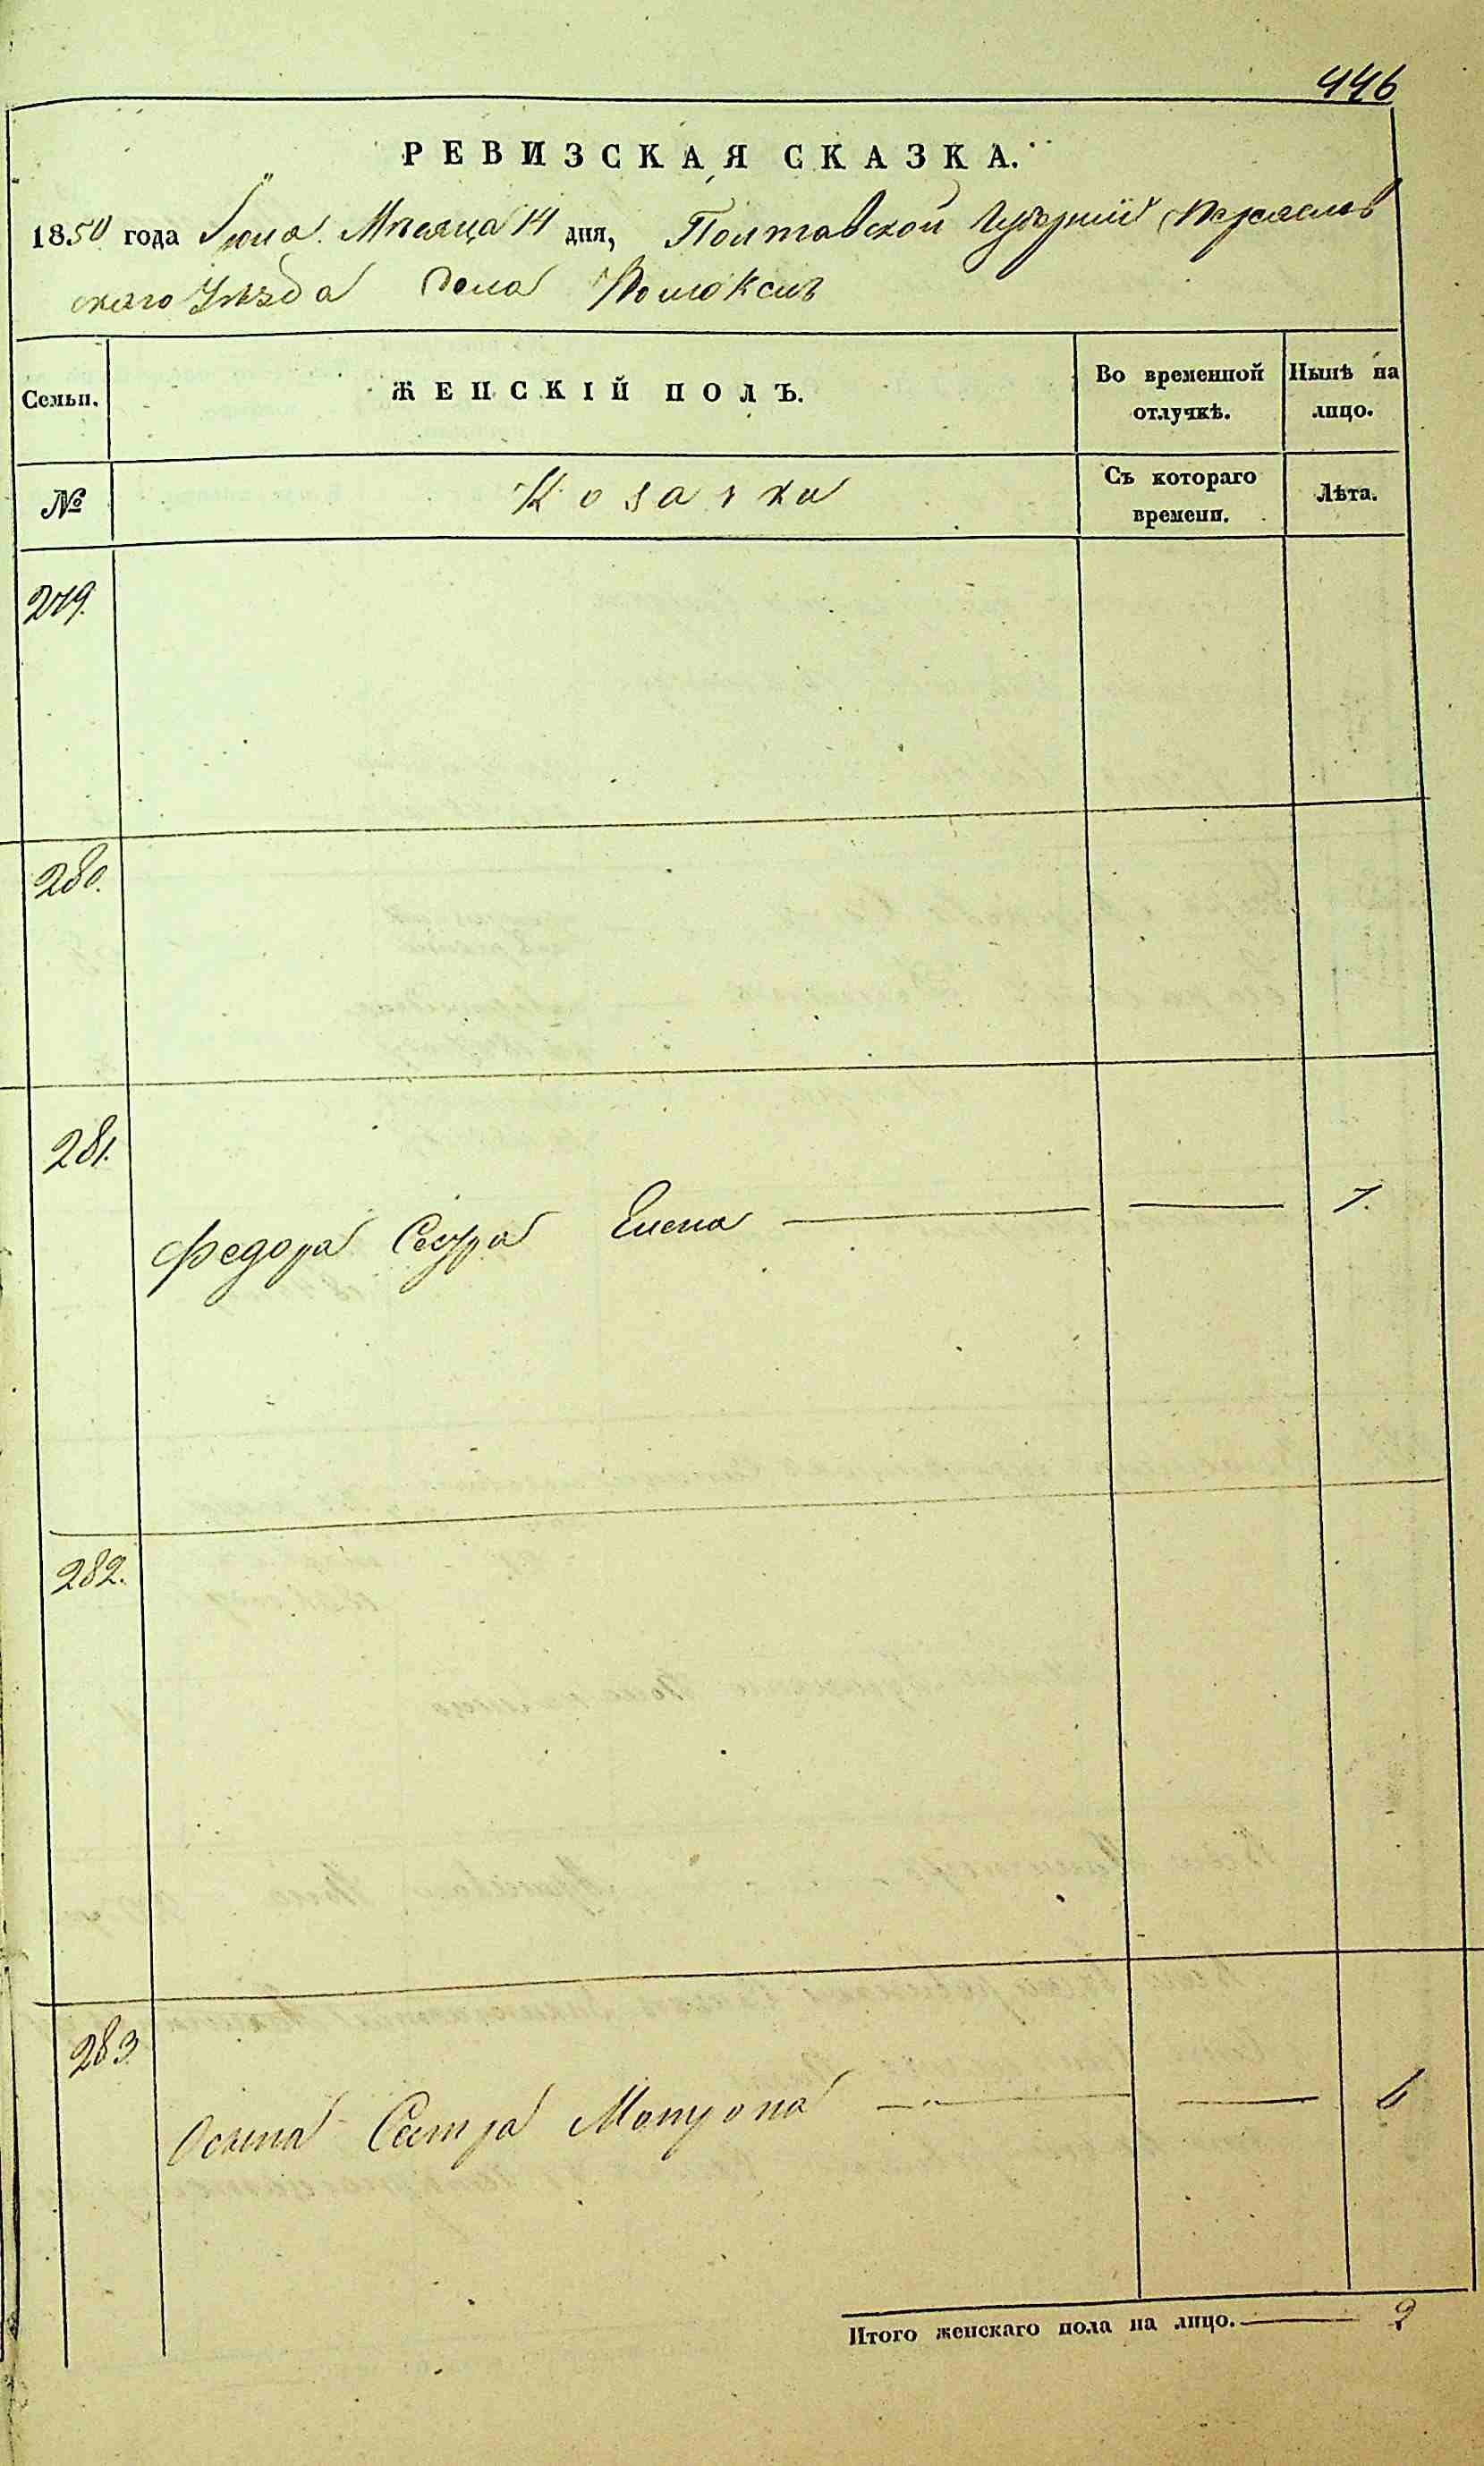 446
РЕВИЗСКАЯ СКАЗКА.
1850 года Іюня Месяца 14 дня, Полтавской Губерніи Переяслов
скаго Уезда Села
Семьи.
ЖЕНСКІЙ ПОЛЪ.
Во временной отлучкѣ.
Нынѣ на лицо.
№
Козачки
Съ котораго времени.
Лѣта.
279.
280.
281.
Федора Сестра Елена 7.
282.
283
Осипа Сестра Матрона 6
Итого женскаго пола на лицо. 2